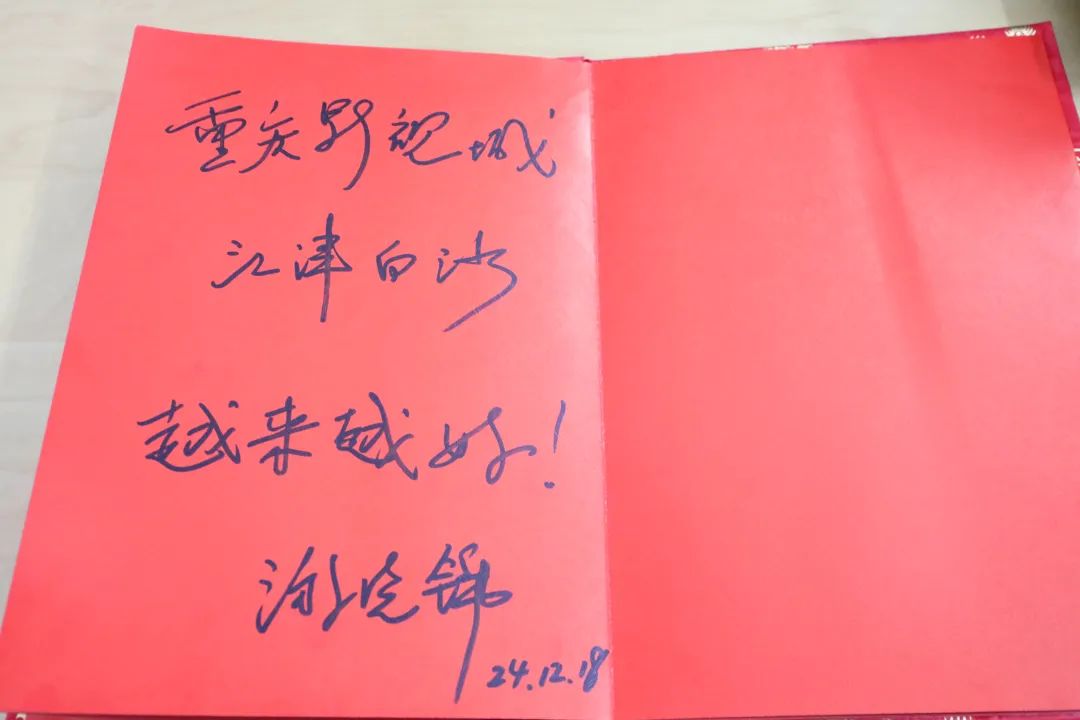 重庆影视城
江津白沙
越来越好！
游晓锦
24.12.18